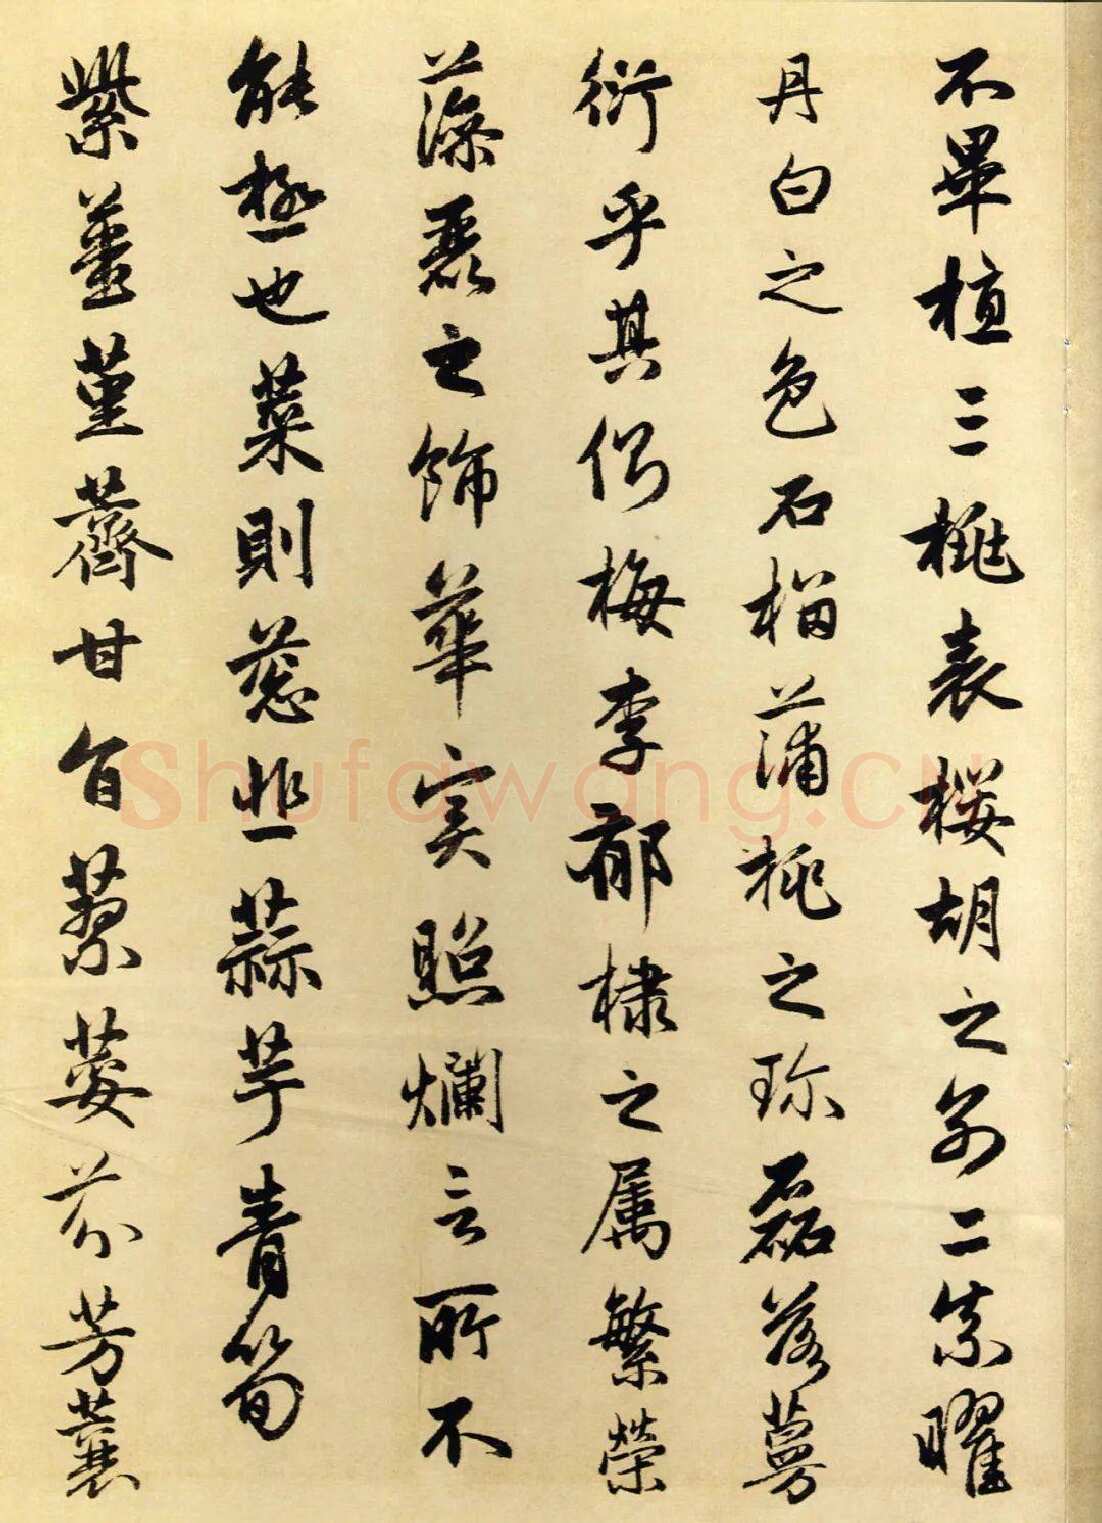 不畢植三桃表櫻胡之别二柰曜
丹白之色石榴蒲桃之珎磊落蔓
衍乎其側梅李郁棣之属繁榮
藻麗之飾華实照爛言所不
能極也菜則葱韭蒜芋青筍
紫薑堇薺甘旨蓼荽芬芳蘘
Shufawang.CN